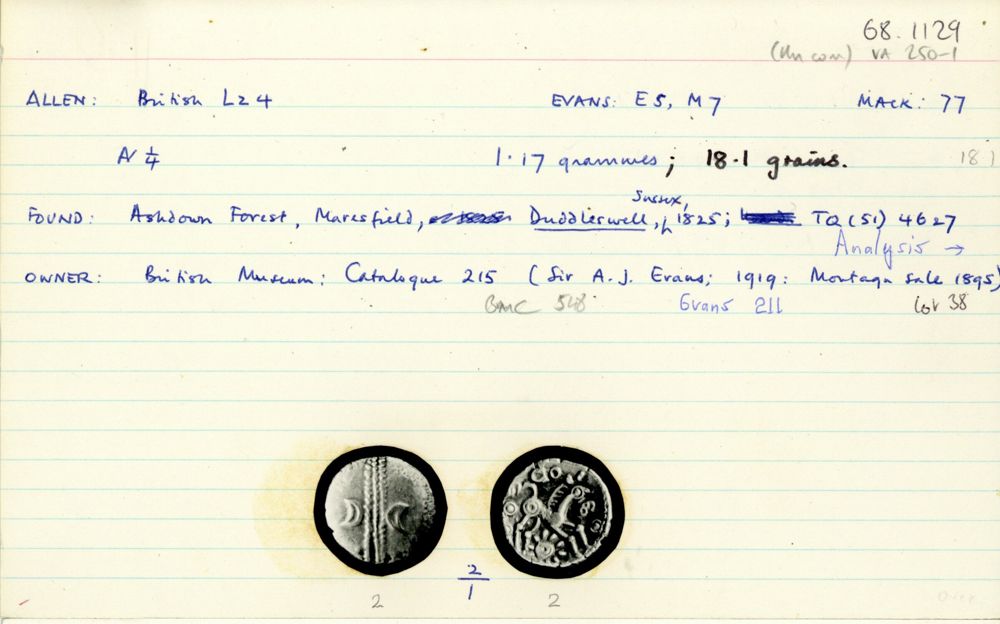 68.1129
(Un con) VA 250-1
ALLEN: British LZ 4 EVANS: E5, M7 MACK: 77
N ¼ 1.17 grammes; 18.1 grains. 181
Sussex,
FOUND: Ashdown Forest, Maresfield, Duddleswell, 1825; TQ (51) 4627
Analysis →
OWNER: British Museum: Catalogue 215 (Sir A.J. Evans; 1919: Montagu Sale 1895)
BMC 548 Evans 211 lot 38
2/1
2 2